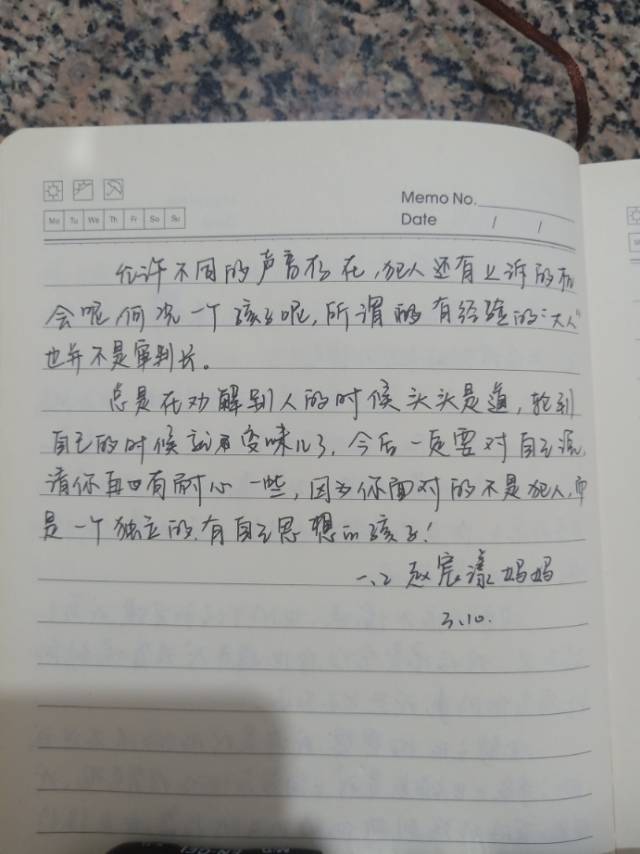 Memo No.
Date / /
Mo Tu We Th Fr Sa Su
允许不同的声音存在,犯人还有上诉的机
会呢,何况一个孩子呢,所谓的有经验的"大人"
也并不是审判长。
总是在劝解别人的时候头头是道,轮到
自己的时候就变味儿了,今后一定要对自己说,
请你再有耐心一些,因为你面对的不是犯人,
是一个独立的、有自己思想的孩子!
一.2 赵宸漾妈妈
3.10.